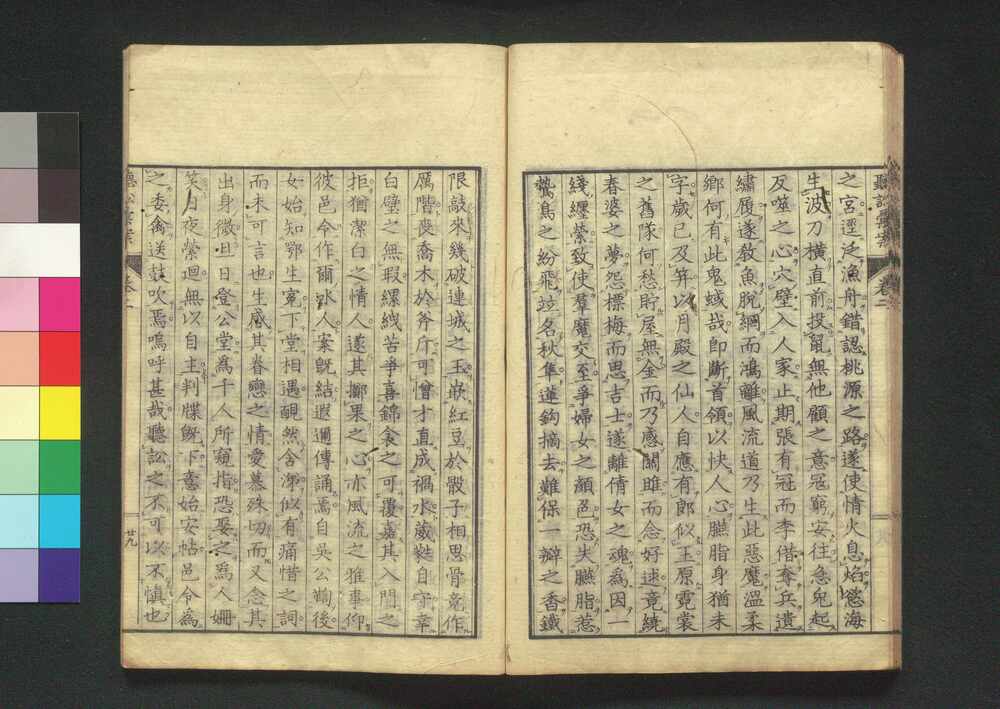 聽訟彙案 卷二
之宮逕泛漁舟錯認桃源之路遂使情火息焰慾海
生波刀橫直前投鼠無他顧之意寇窮安往急兔起
反噬之心穴壁入人家止期張有冠而李借奪兵遺
繡履遂教魚脫網而鴻離風流道乃生此惡魔溫柔
鄉何有此鬼蜮哉即斷首領以快人心臙脂身猶未
字歲已及笄以月殿之仙人自應有郎似玉原霓裳
之舊隊何愁貯屋無金而乃感關雎而念好逑竟繞
春婆之夢怨摽梅而思吉士遂離倩女之魂為因一
綫纏縈致使羣魔交至爭婦女之顏色恐失臙脂惹
鷙鳥之紛飛竝名秋隼蓮鉤摘去難保一瓣之香鐵
限敲來幾破連城之玉嵌紅豆於骰子相思骨竟作
厲階喪喬木於斧斤可憎才直成禍水葳蕤自守幸
白璧之無瑕縲絏苦爭喜錦衾之可覆嘉其入門之
拒猶潔白之情人遂其擲果之心亦風流之雅事仰
彼邑令作爾冰人案既結遐邇傳誦焉自吳公鞫後
女始知鄂生冤下堂相遇靦然含涕似有痛惜之詞
而未可言也生感其眷戀之情愛慕殊切而又念其
出身微且日登公堂為千人所窺指恐娶之為人姍
笑日夜縈迴無以自主判牒既下意始安帖邑令為
之委禽送鼓吹焉嗚呼甚哉聽訟之不可以不慎也
聽訟彙案 卷二 廿九